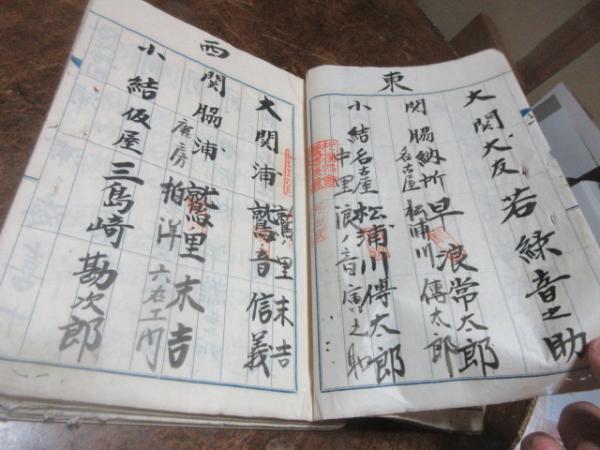 東
大関大友 若緑音之助
関脇納所 早浪常太郎
名古屋 松浦川 傳太郎
小結名古屋 松浦川傳太郎
中里 浪ノ音 寅之助
西
鷲里 末吉
大関浦 鷲音 信義
関脇浦 鷲里 末吉
唐房 柏洋 六右エ門
小結仮屋 三島崎 勘次郎